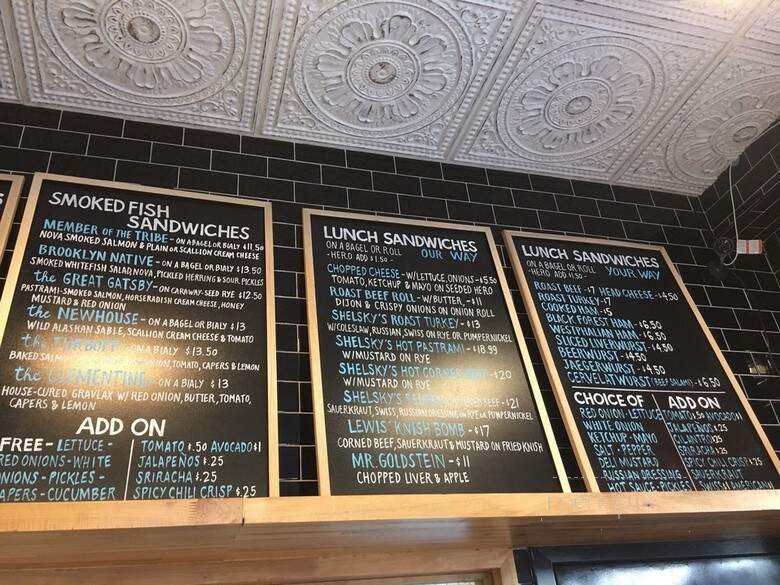 SMOKED FISH
SANDWICHES
MEMBER OF THE TRIBE - ON A BAGEL OR BIALY $11.50
NOVA SMOKED SALMON & PLAIN OR SCALLION CREAM CHEESE
BROOKLYN NATIVE - ON A BAGEL OR BIALY $13.50
SMOKED WHITEFISH SALAD, NOVA, PICKLED HERRING & SOUR PICKLES
the GREAT GATSBY - ON CARAWAY-SEED RYE $12.50
PASTRAMI-SMOKED SALMON, HORSERADISH CREAM CHEESE, HONEY
MUSTARD & RED ONION
the NEWHOUSE - ON A BAGEL OR BIALY $13
WILD ALASKAN SABLE, SCALLION CREAM CHEESE & TOMATO
the ON A BIALY $13.50
BAKED TOMATO, CAPERS & LEMON
the CLEMENTINE - ON A BIALY $13
HOUSE-CURED GRAVLAX W/ RED ONION, BUTTER, TOMATO,
CAPERS & LEMON
ADD ON
FREE - LETTUCE -
RED ONIONS - WHITE
NIONS - PICKLES -
APERS - CUCUMBER
TOMATO $.50 AVOCADO $1
JALAPEÑOS $.25
SRIRACHA $.25
SPICY CHILI CRISP $.25
LUNCH SANDWICHES
ON A BAGEL OR ROLL OUR WAY
-HERO ADD $1.50-
CHOPPED CHEESE - W/LETTUCE, ONIONS -
TOMATO, KETCHUP & MAYO ON SEEDED HERO
ROAST BEEF ROLL - W/BUTTER, - $11
DIJON & CRISPY ONIONS ON ONION ROLL
SHELSKY'S ROAST TURKEY - $13
W/COLESLAW, RUSSIAN, SWISS ON RYE OR PUMPERNICKEL
SHELSKY'S HOT PASTRAMI - $18.99
W/MUSTARD ON RYE
SHELSKY'S HOT CORNED $20
W/MUSTARD ON RYE
SHELSKY'S BEEF - $21
SAUERKRAUT, SWISS, RUSSIAN DRESSING ON RYE OR PUMPERNICKEL
LEWIS' KNISH BOMB - $17
CORNED BEEF, SAUERKRAUT & MUSTARD ON FRIED KNISH
MR. GOLDSTEIN - $11
CHOPPED LIVER & APPLE
LUNCH SANDWICHES
ON A BAGEL OR ROLL YOUR WAY
-HERO ADD $1.50
ROAST BEEF - $7 HEAD CHEESE - $4.50
ROAST TURKEY - $7
COOKED HAM - $5
BLACK FOREST HAM - $6.50
WESTPHALIAN HAM - $6.50
SLICED LIVERWURST - $4.50
BEERWURST - $4.50
JAEGERWURST - $4.50
CERVELATWURST (BEEF SALAMI) - $6.50
CHOICE OF
RED ONION - LETTUCE
WHITE ONION
KETCHUP - MAYO
SALT - PEPPER
DELI MUSTARD
RUSSIAN DRESSING -
HOT SAUCE - PICKLES
ADD ON
TOMATO $.50 AVOCADO $1
JALAPEÑOS $.25
CILANTRO $.25
SRIRACHA $.25
SPICY CHILI CRISP $.25
SWISS/AMERICAN $1